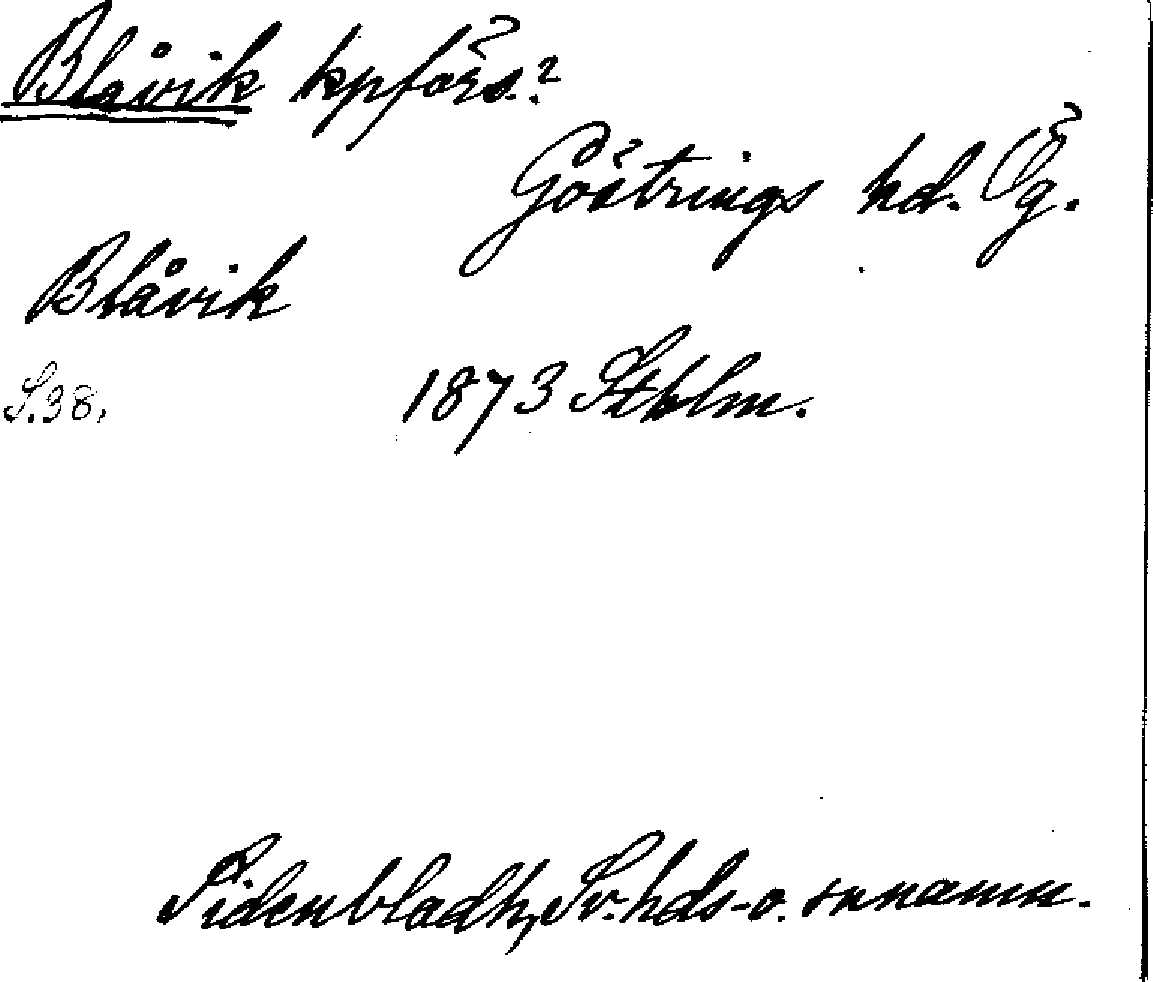 Blåvik kpförs.?
Göstrings hd. Ög.
Blåvik
S.38. 1873 Sthlm.
Sidenbladh, Sv. hds- o. snnamn.